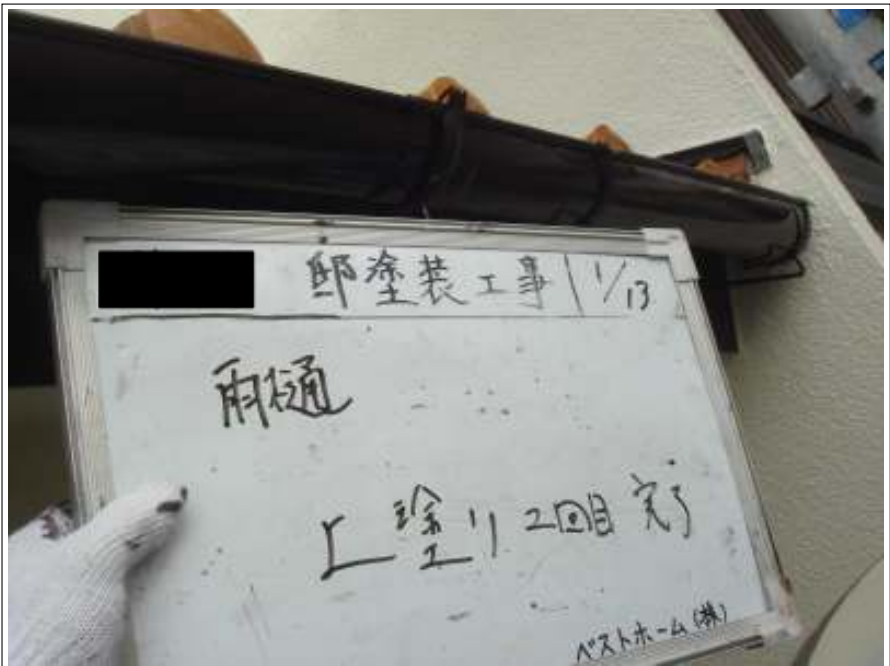 邸塗装工事 1/13
雨樋
上塗り2回目完了
ベストホーム(株)